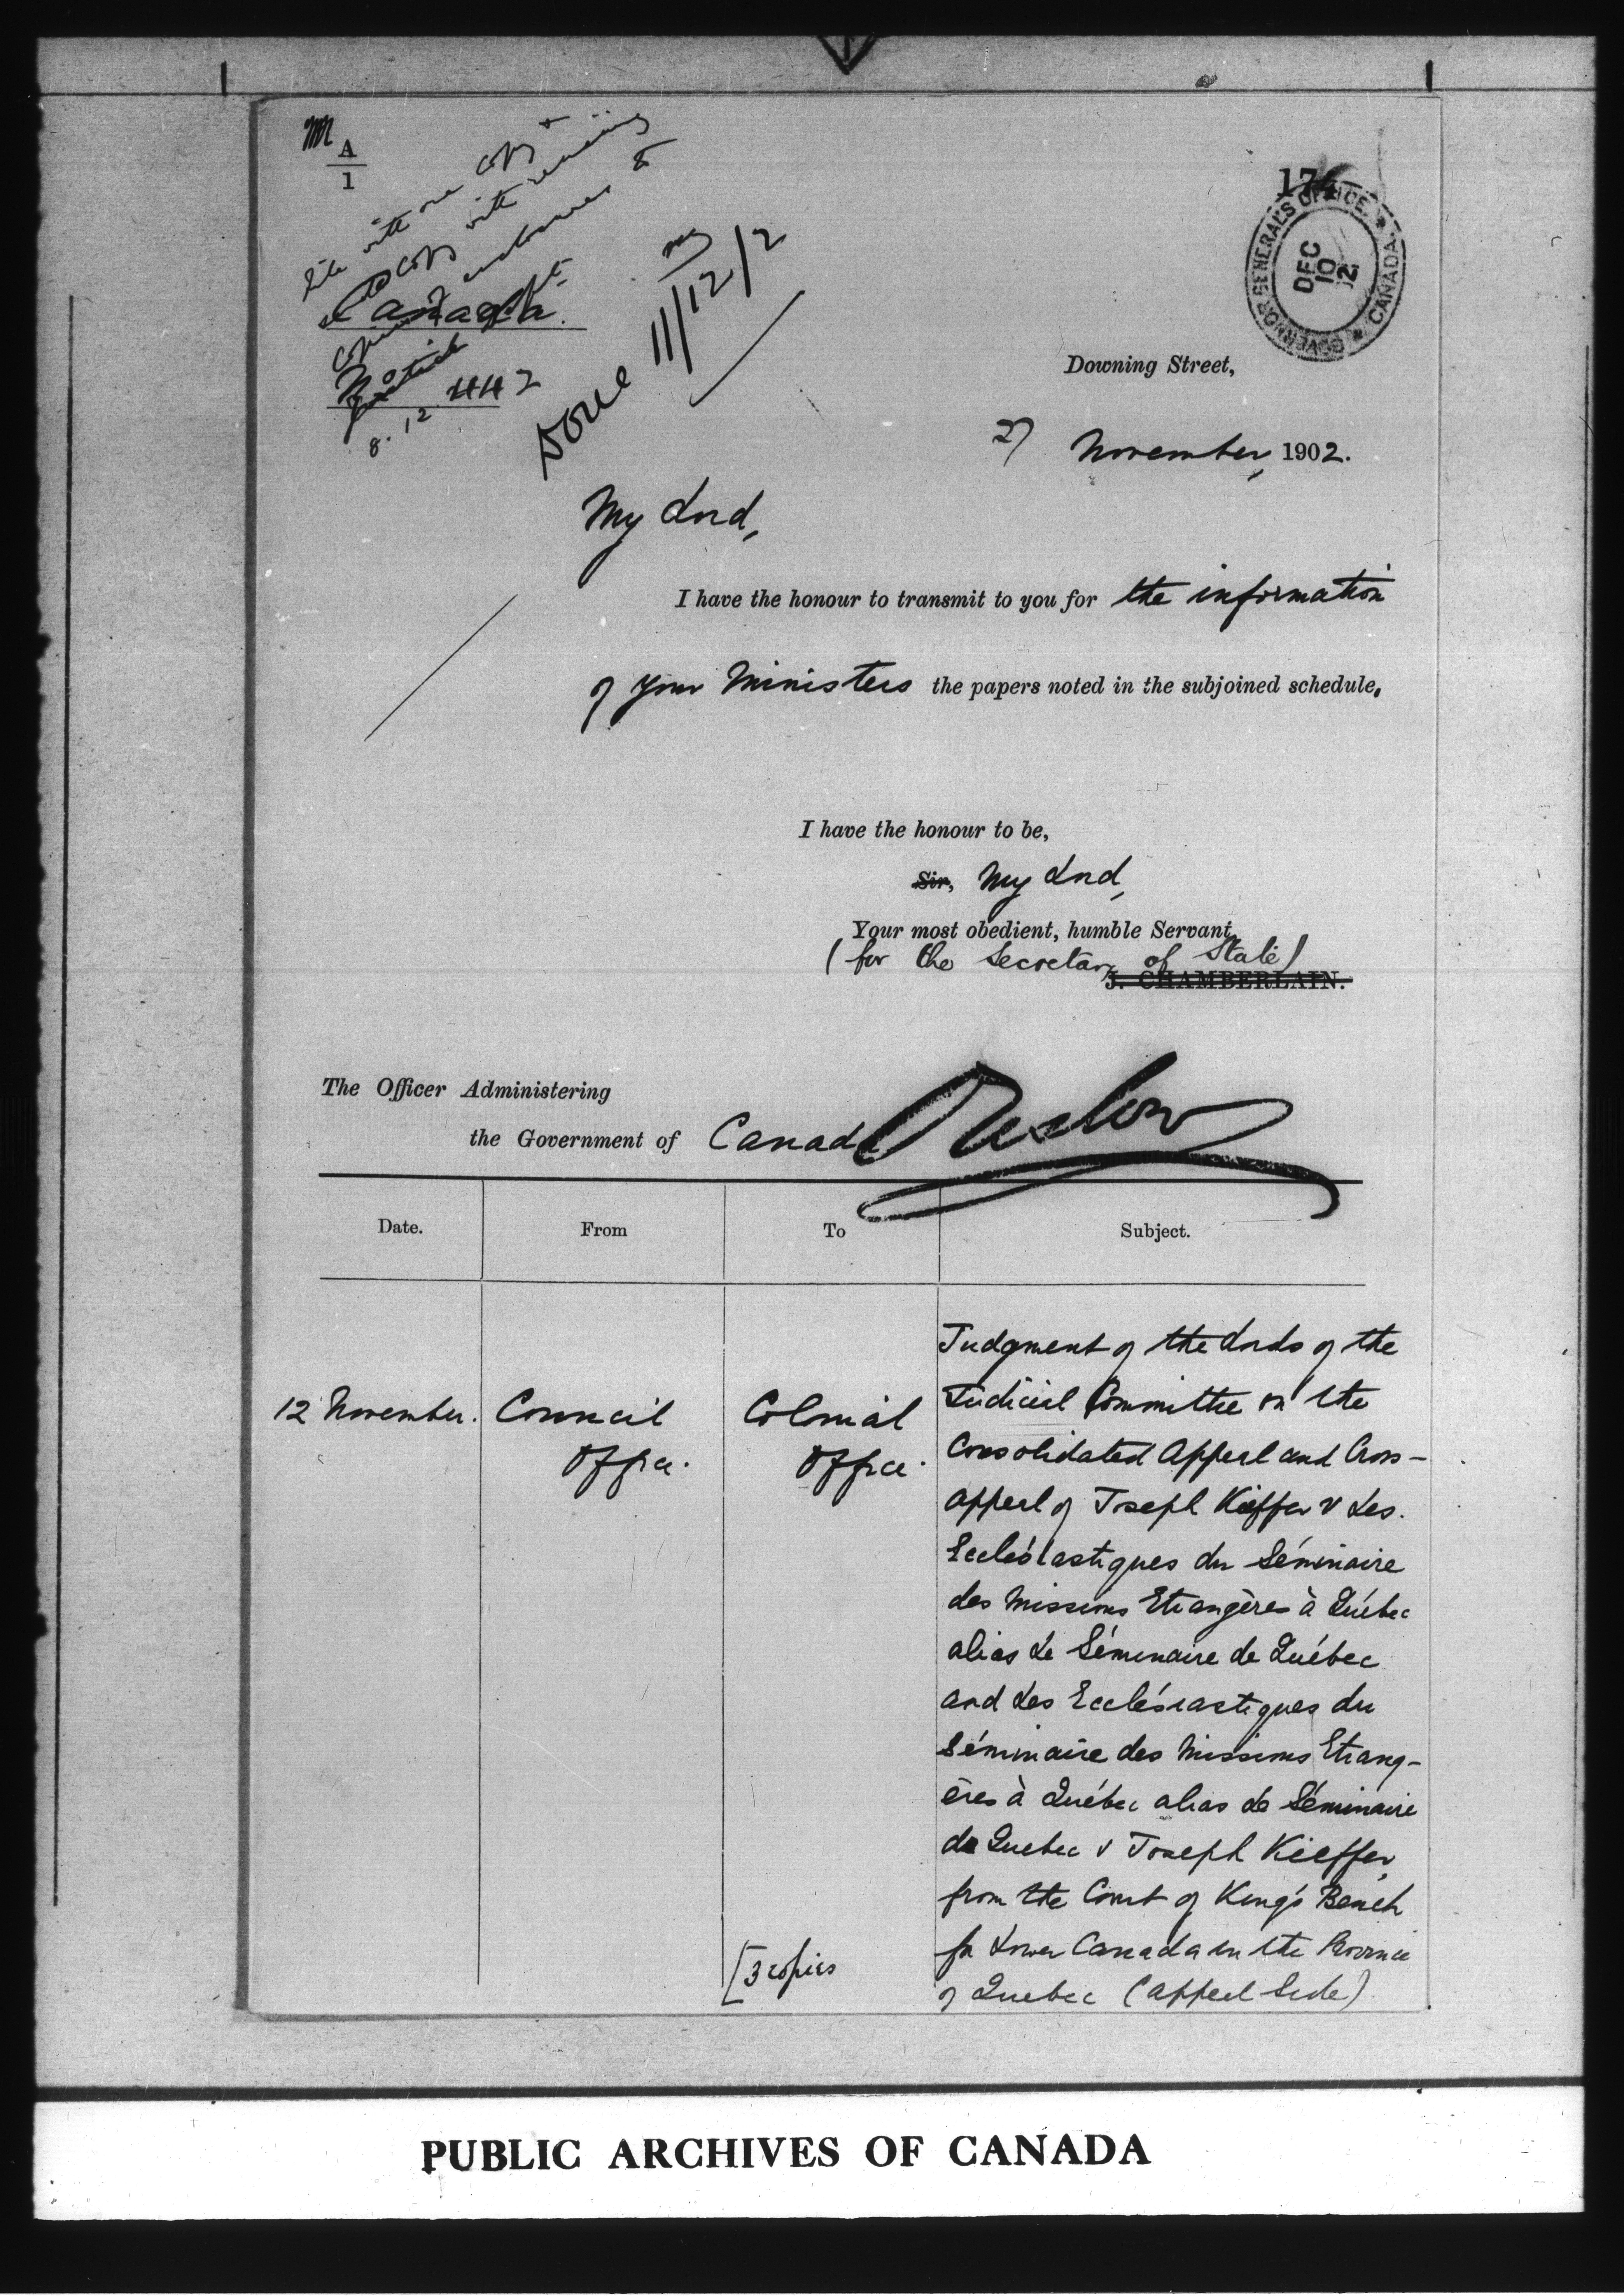 A
1
174
GOVERNOR GENERAL'S OFFICE
CANADA
DEC
10
02
Canada.
No 442
8.12
Done 11/12/2
Downing Street,
27 November, 1902.
My Lord,
I have the honour to transmit to you for the information
of your Ministers the papers noted in the subjoined schedule.
I have the honour to be,
Sir, My Lord,
Your most obedient, humble Servant,
(for the Secretary of State)
J. CHAMBERLAIN.
Onslow
The Officer Administering
the Government of Canada
Date. From To Subject.
12 November. Council Office. Colonial Office.
Judgment of the Lords of the
Judicial Committee on the
Consolidated Appeal and Cross-
appeal of Joseph Kieffer v Les
Ecclésiastiques du Séminaire
des Missions Etrangères à Québec
alias Le Séminaire de Québec
and Les Ecclésiastiques du
Séminaire des Missions Etrang-
ères à Québec alias Le Séminaire
de Quebec v Joseph Kieffer
from the Court of King's Bench
for Lower Canada in the Province
of Quebec (Appeal Side)
[3 copies
PUBLIC ARCHIVES OF CANADA